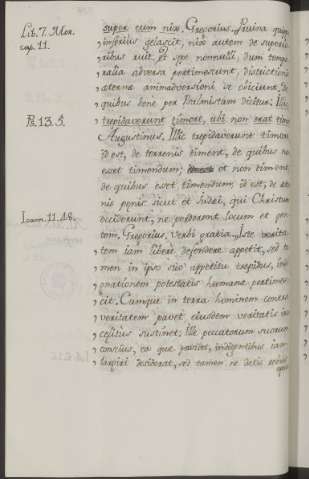 Lib. 7. Mor.
cap. 11.
super eum nix. Gregorius. Pruina quippe
inferius gelascit, nix autem de superio-
ribus ruit. Et sæpe nonnulli, dum tempo-
ralia adversa pertimescunt, districtioni
æternæ animadversionis se obiiciunt, de
quibus bene per Psalmistam dicitur: Illic
Ps. 13. 5.
trepidaverunt timore, ubi non erat timor.
Augustinus. Illic trepidaverunt timore
id est, de terrenis timent, de quibus non
esset timendum; et non timent
de quibus esset timendum, id est, de æter-
nis pœnis sicut et Iudæi, qui Christum
Ioann. 11. 48.
occiderunt, ne perderent locum et gen-
tem, Gregorius. verbi gratia. Iste verita-
tem iam libere defendere appetit, sed ta-
men in ipso suo appetitu trepidus, indi-
gnationem potestatis humanæ pertimes-
cit. Cumque in terra hominem contra
veritatem pavet, eiusdem veritatis iram
cœlitus sustinet. Ille peccatorum suorum
conscius, ea quæ possidet, indigentibus iam
largiri desiderat, sed tamen ne datis